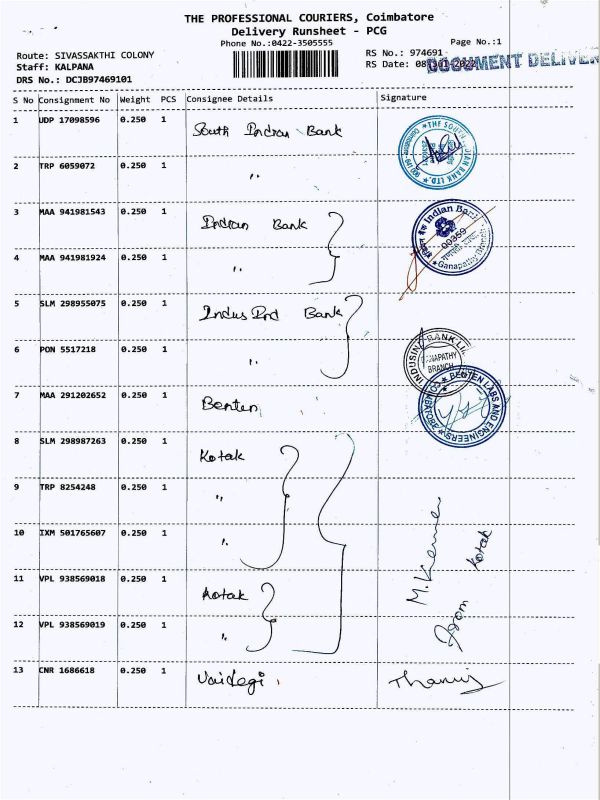 THE PROFESSIONAL COURIERS, Coimbatore
Delivery Runsheet - PCG
Phone No.:0422-3505555
Page No.:1
Route: SIVASSAKTHI COLONY
RS No.: 974691
Staff: KALPANA
RS Date: 08
DOCUMENT DELIVER
DRS No.: DCJB97469101
S No Consignment No Weight PCS Consignee Details Signature
1 UDP 17098596 0.250 1 South Indian Bank
2 TRP 6059072 0.250 1 "
3 MAA 941981543 0.250 1 Indian Bank
4 MAA 941981924 0.250 1 "
5 SLM 298955075 0.250 1 Indus Ind Bank
6 PON 5517218 0.250 1 "
7 MAA 291202652 0.250 1 Benten
8 SLM 298987263 0.250 1 Kotak
9 TRP 8254248 0.250 1 "
10 IXM 501765607 0.250 1 "
11 VPL 938569018 0.250 1 Kotak
12 VPL 938569019 0.250 1 "
13 CNR 1686618 0.250 1 Vaidegi
THE SOUTH INDIAN BANK LTD.
Indian Bank
00359
Ganapathy Branch
INDUSIND BANK LTD
GANAPATHY
BRANCH
BENTEN LABS AND ENGINEERS
M. Kumar
From Kotak